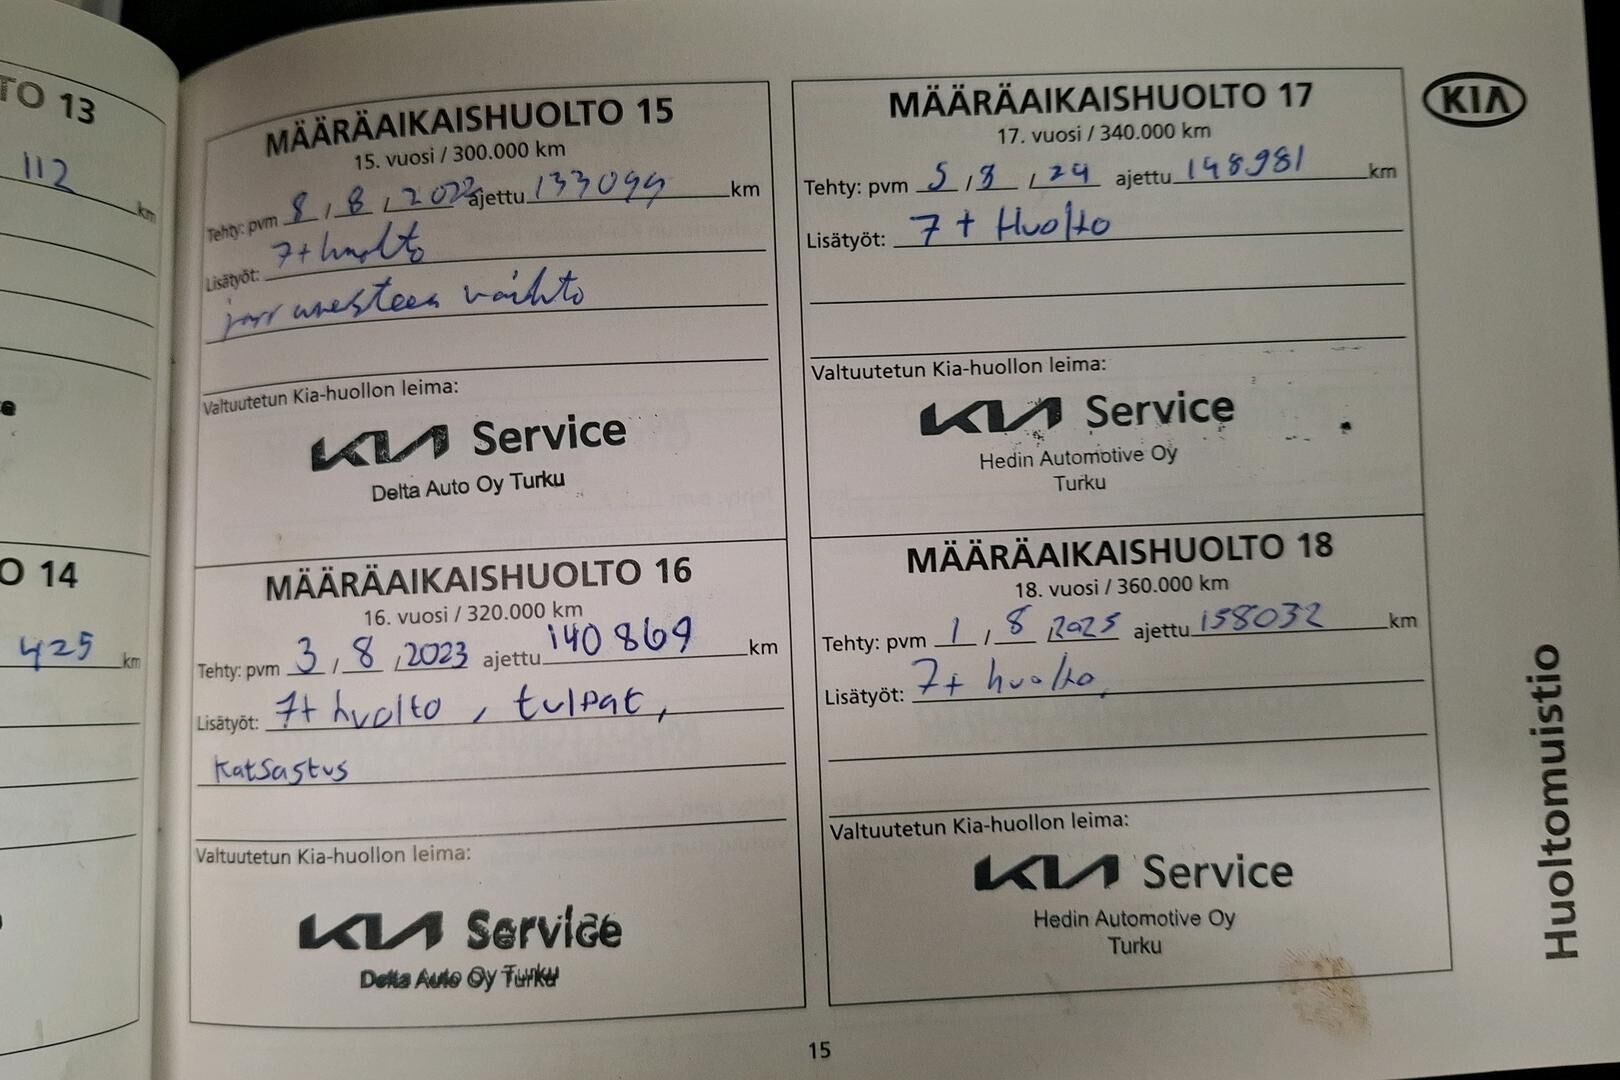 TO 13
112
km
O 14
425 km
MÄÄRÄAIKAISHUOLTO 15
15. vuosi / 300.000 km
Tehty: pvm 8 / 8 / 2022 ajettu 133099 km
Lisätyöt: 7+ huolto
jarrunesteen vaihto
Valtuutetun Kia-huollon leima:
KIA Service
Delta Auto Oy Turku
MÄÄRÄAIKAISHUOLTO 16
16. vuosi / 320.000 km
Tehty: pvm 3 / 8 / 2023 ajettu 140869 km
Lisätyöt: 7+ huolto, tulpat,
Katsastus
Valtuutetun Kia-huollon leima:
KIA Service
Delta Auto Oy Turku
MÄÄRÄAIKAISHUOLTO 17
17. vuosi / 340.000 km
Tehty: pvm 5 / 8 / 24 ajettu 148981 km
Lisätyöt: 7 + Huolto
Valtuutetun Kia-huollon leima:
KIA Service
Hedin Automotive Oy
Turku
MÄÄRÄAIKAISHUOLTO 18
18. vuosi / 360.000 km
Tehty: pvm 1 / 8 / 2025 ajettu 158032 km
Lisätyöt: 7+ huolto
Valtuutetun Kia-huollon leima:
KIA Service
Hedin Automotive Oy
Turku
KIA
Huoltomuistio
15